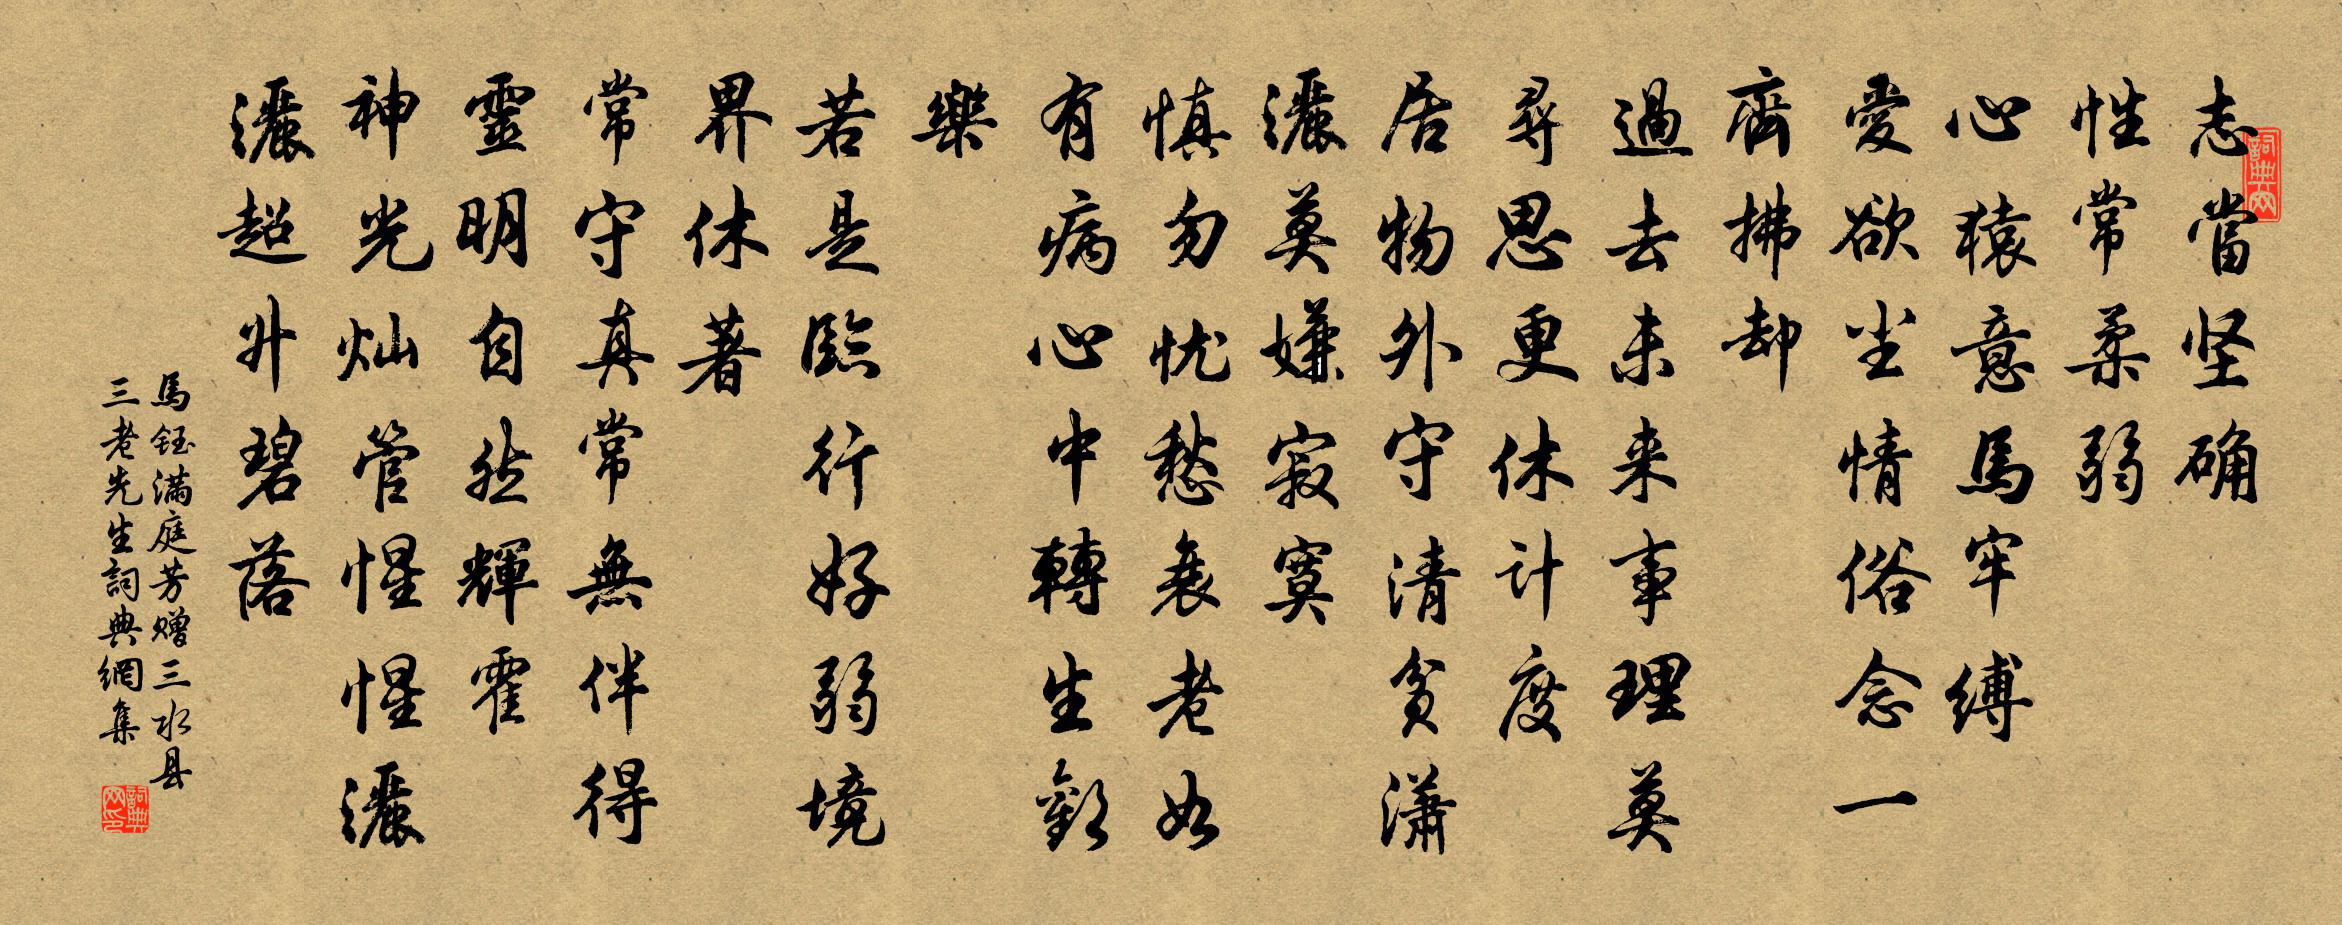 志當坚确
性常柔弱
心猿意馬牢缚
愛欲尘情俗念一
齊拂却
過去未来事理莫
尋思更休计度
居物外守清贫潇
灑莫嫌寂寞
慎勿忧愁衰老如
有病心中轉生歡
樂
若是臨行好弱境
界休著
常守真常無伴得
靈明自然輝霍
神光灿管惺惺灑
灑超升碧落
馬钰满庭芳赠三水县
三老先生詞典網集
詞典网
詞典网印